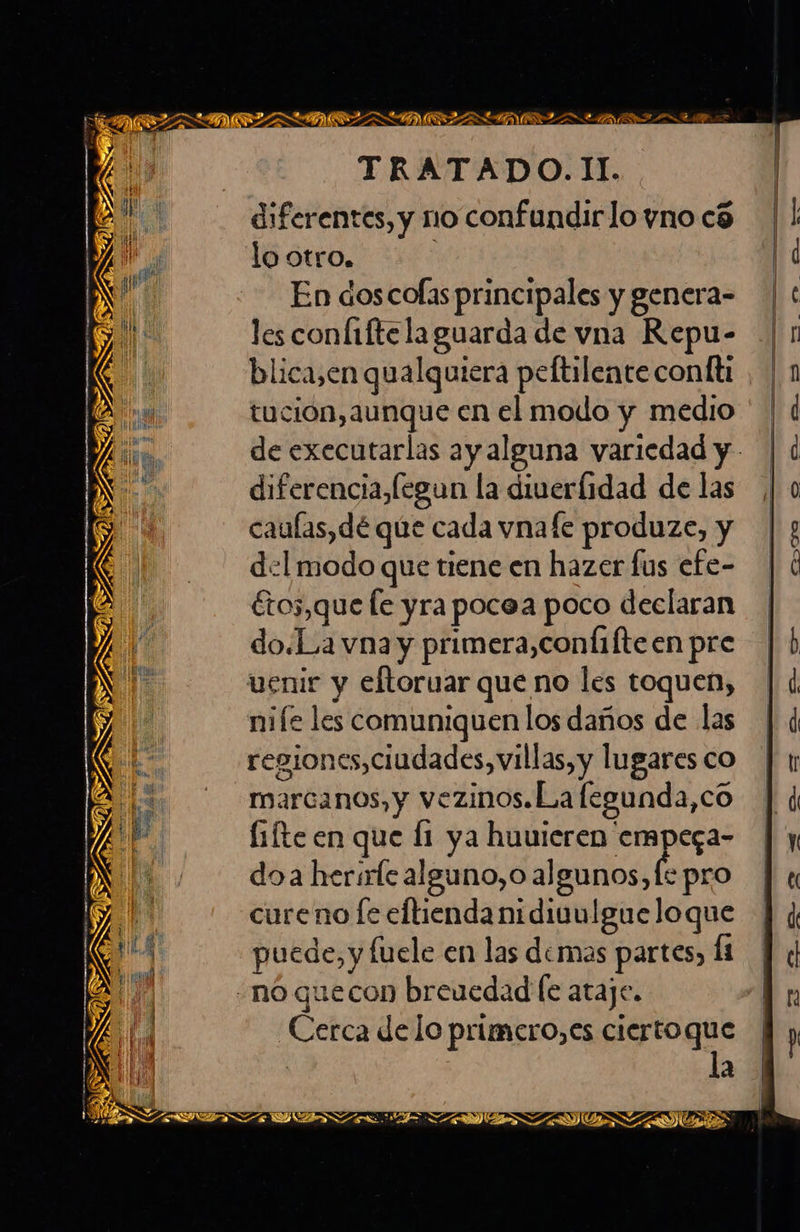 TRATADO. II.
diferentes, y no confundir lo vno cõ
lo otro.
En dos coſas principales y genera-
les conſiſte la guarda de vna Repu-
blica, en qualquiera peſtilente conſti
tucion, aunque en el modo y medio
de executarlas ay alguna variedad y
diferencia, ſegun la diuerſidad de las
cauſas, dé que cada vna ſe produze, y
del modo que tiene en hazer ſus efe-
ctos, que ſe yra poco a poco declaran
do. La vna y primera, conſiſte en pre
uenir y eſtoruar que no les toquen,
ni ſe les comuniquen los daños de las
regiones, ciudades, villas, y lugares co
marcanos, y vezinos. La ſegunda, cõ
ſiſte en que ſi ya huuieren empeça-
do a herirſe alguno, o algunos, ſe pro
cure no ſe eſtienda ni diuulgue lo que
puede, y ſuele en las demas partes, ſi
no que con breuedad ſe ataje.
Cerca de lo primero, es cierto que
la